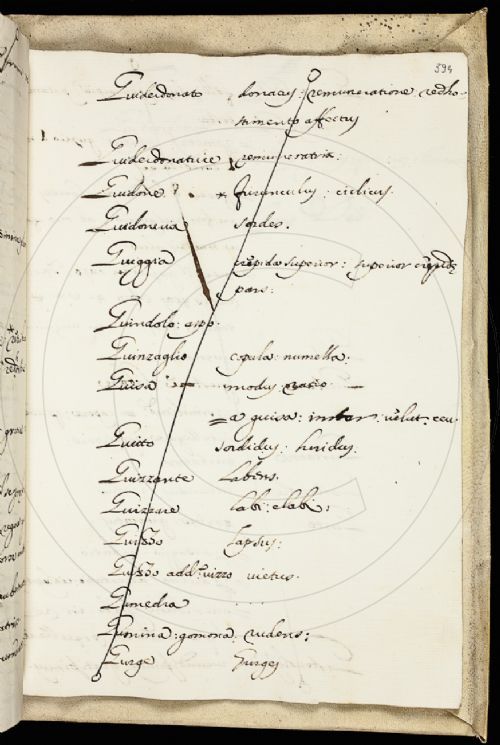 394
Guiderdonato donatus: remuneratione redho-
stimento affectus
Guiderdonatrice remuneratrix:
Guidone furunculus: ciclicus.
Guidoneria sordes.
Gueggia superior: superior
pars:
Guindolo: arpo.
Guinzaglio copula: numella.
Guisa modus
a guisa: instar: velut: ceu.
Guitto sordidus: luridus.
Guizzante Labens.
Guizzare labi: elabi:
Guizzo lapsus:
Guizzo add: vizzo vietus.
Gumedra
Gumina: gomona: rudens:
Gurge Gurges